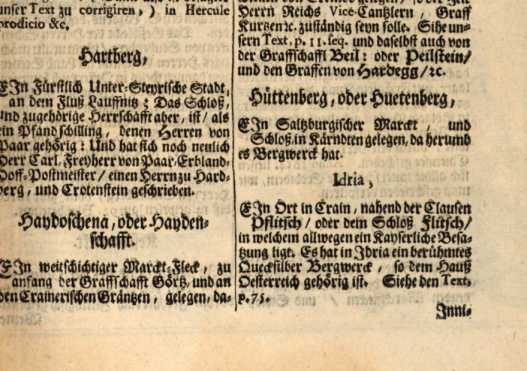 unser Text zu corrigiren, ) in Hercule
prodicio &c.
Hartberg,
EIn Fürstlich Unter-Steyrische Stadt,
an dem Fluß Lauffnitz: Das Schloß,
und zugehörige Herrschafft aber, ist/ als
ein Pfandschilling, denen Herren von
Paar gehörig: Und hat sich noch neulich
Herr Carl, Freyherr von Paar, Erbland-
Hoff-Postmeister/ einen Herrn zu Hard-
berg, und Crotenstein geschrieben.
Haydoschena, oder Hayden-
schafft.
EIn weitschichtiger Marckt-Fleck, zu
anfang der Graffschafft Görtz, und an
den Crainerischen Gräntzen, gelegen, da-
Herrn Reichs Vice-Cantzlern, Graff
Kurtzen &c. zuständig seyn solle. Sihe un-
sern Text, p. 11. seq. und daselbst auch von
der Graffschafft Beil: oder Peilstein/
und den Graffen von Hardegg/ &c.
Hüttenberg, oder Huetenberg,
EIn Saltzburgischer Marckt, und
Schloß, in Kärndten gelegen, da herumb
es Bergwerck hat.
Idria,
EIn Ort in Crain, nahend der Clausen
Pflitsch/ oder dem Schloß Flitsch/
in welchem allwegen ein Kayserliche Besa-
tzung ligt. Es hat in Idria ein berühmtes
Quecksilber Bergwerck, so dem Hauß
Oesterreich gehörig ist. Siehe den Text,
p. 75.
Inni-